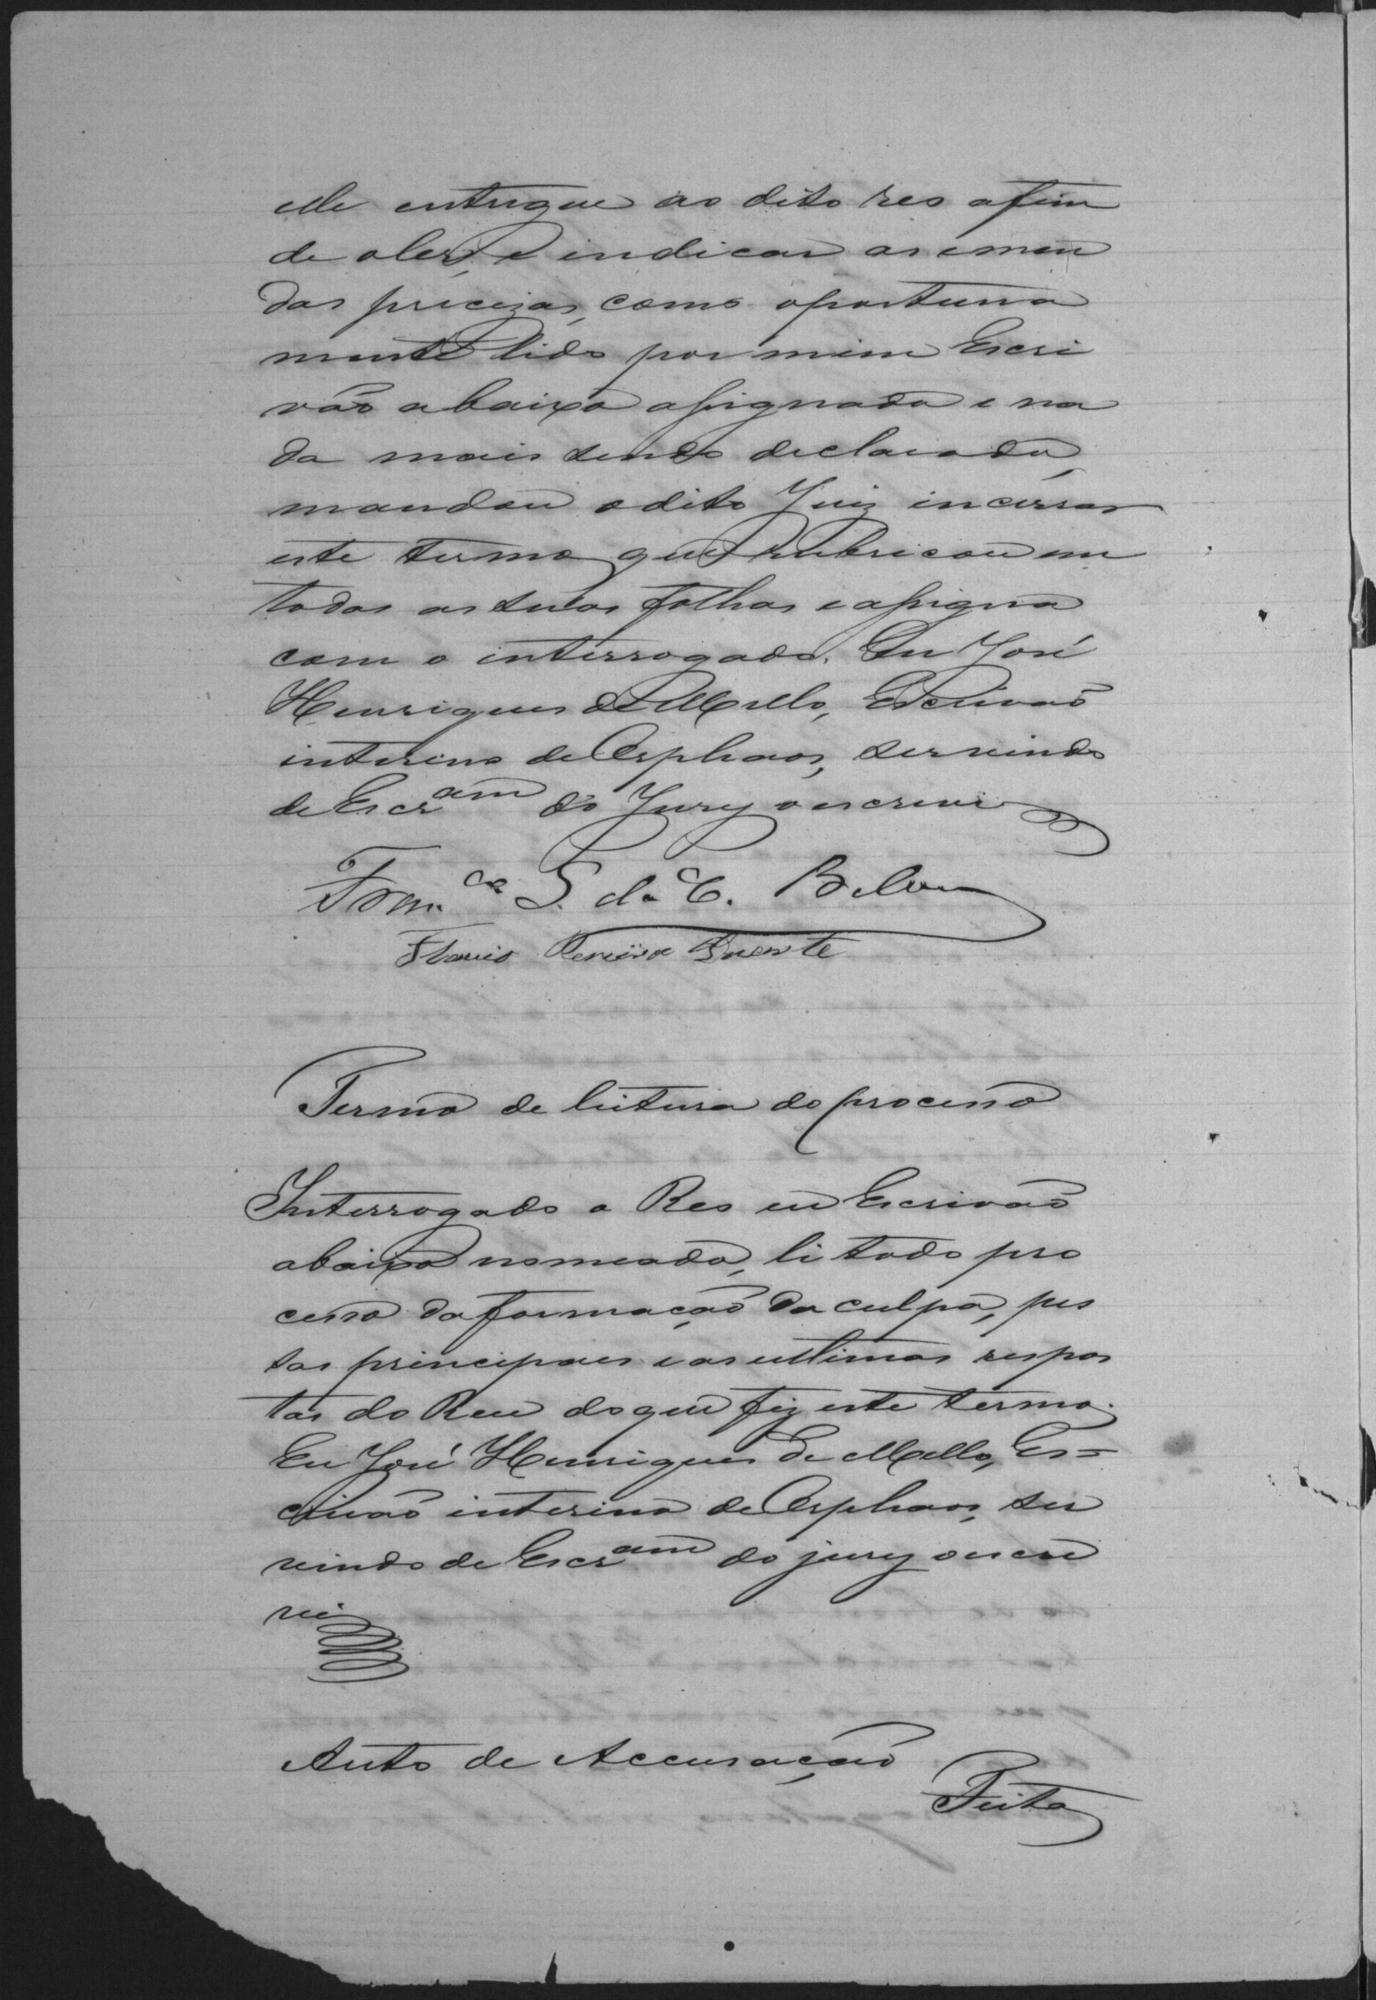 elle entregue ao dito reo afim
de o ler, e indicar as emen
das precizas, como oportuna
mente lido por mim Escri
vão abaixo assignado e na
da mais sendo declarado,
mandou o dito Juiz incerrar
este termo que rubricou em
todas as suas folhas e assigna
com o interrogado. Eu José
Henriques de Mello, Escrivaõ
interino de Orphaos, servindo
de Escram do Jury o escrevi
Fran.co S. da C. Belem
Flavio Pereira Duarte
Termo de leitura do processo
Interrogado o Reo eu Escrivaõ
abaixo nomeado, li todo pro
cesso da formaçaõ da culpa, pes
tas principaes e as ultimas respos
tas do Reu do que fiz este termo.
Eu José Henriques de Mello, Es=
crivaõ interino de Orphaos, ser
vindo de Escram do jury o escre
vi
Auto de Accusaçaõ
Feita